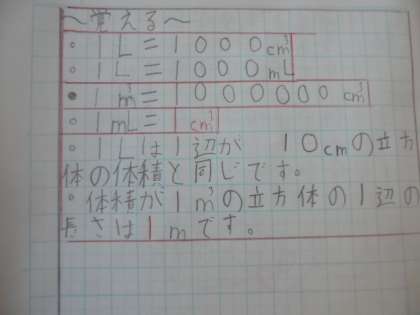 ～覚える～
◦1L=1000cm³
◦1L=1000mL
●1m³=1000000cm³
◦1mL=1cm³
◦1Lは1辺が10cmの立方
体の体積と同じです。
◦体積が1m³の立方体の1辺の
長さは1mです。